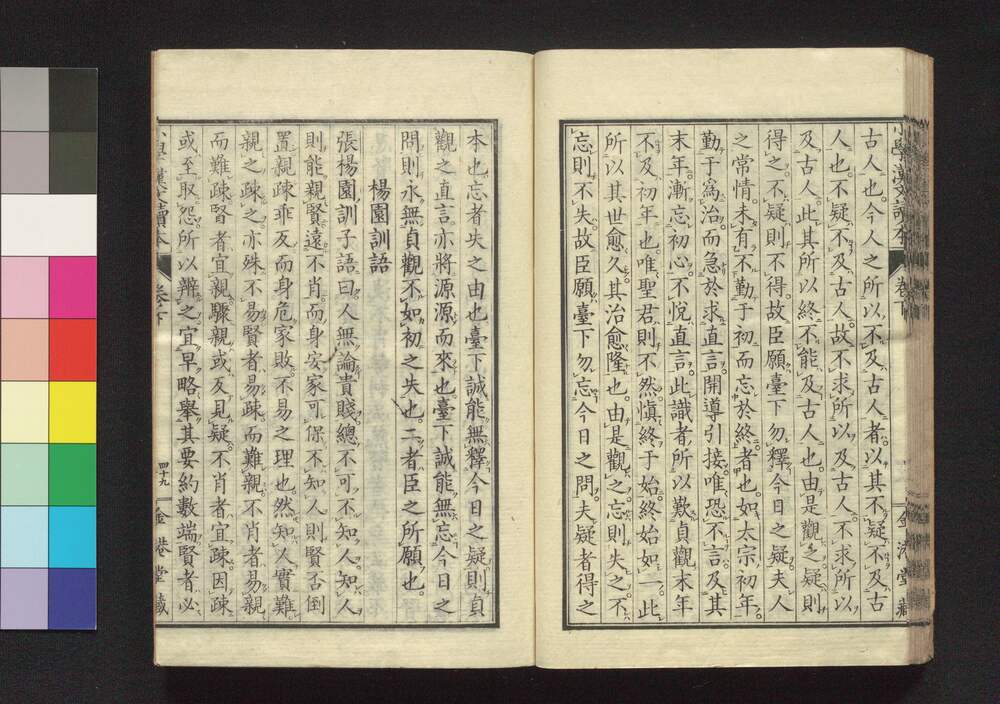 小學漢文讀本
卷下
金港堂藏
古人也。今人之所以不及古人者。以其不疑不及古
人也。不疑不及古人。故不求所以及古人。不求所以
及古人。此其所以終不能及古人也。由是觀之。疑則
得之。不疑則不得。故臣願臺下勿釋今日之疑。夫人
之常情。未有不勤于初而忘於終者也。如太宗初年
勤于爲治。而急於求直言。開導引接。唯恐不言及其
末年。漸忘初心。不悅直言。此識者所以歎貞觀末年
不及初年也。唯聖君則不然。愼終于始。終始如一。此
所以其世愈久。其治愈隆也。由是觀之。忘則失之。不
忘則不失。故臣願臺下勿忘今日之問。夫疑者得之
本也。忘者失之由也。臺下誠能無釋今日之疑。則貞
觀之直言。亦將源源而來也。臺下誠能無忘今日之
問。則永無貞觀不如初之失也。二者臣之所願也。
楊園訓語
張楊園訓子語曰。人無論貴賤。總不可不知人。知人
則能親賢遠不肖。而身安家可保。不知人則賢否倒
置。親疎乖反。而身危家敗。不易之理也。然知人實難。
親之疎之。亦殊不易。賢者易疎而難親。不肖者易親
而難疎。賢者宜親。驟親或反見疑。不肖者宜疎。因疎
或至取怨。所以辨之宜早。略舉其要。約數端。賢者必
小學漢文讀本
卷下
四十九
金港堂藏